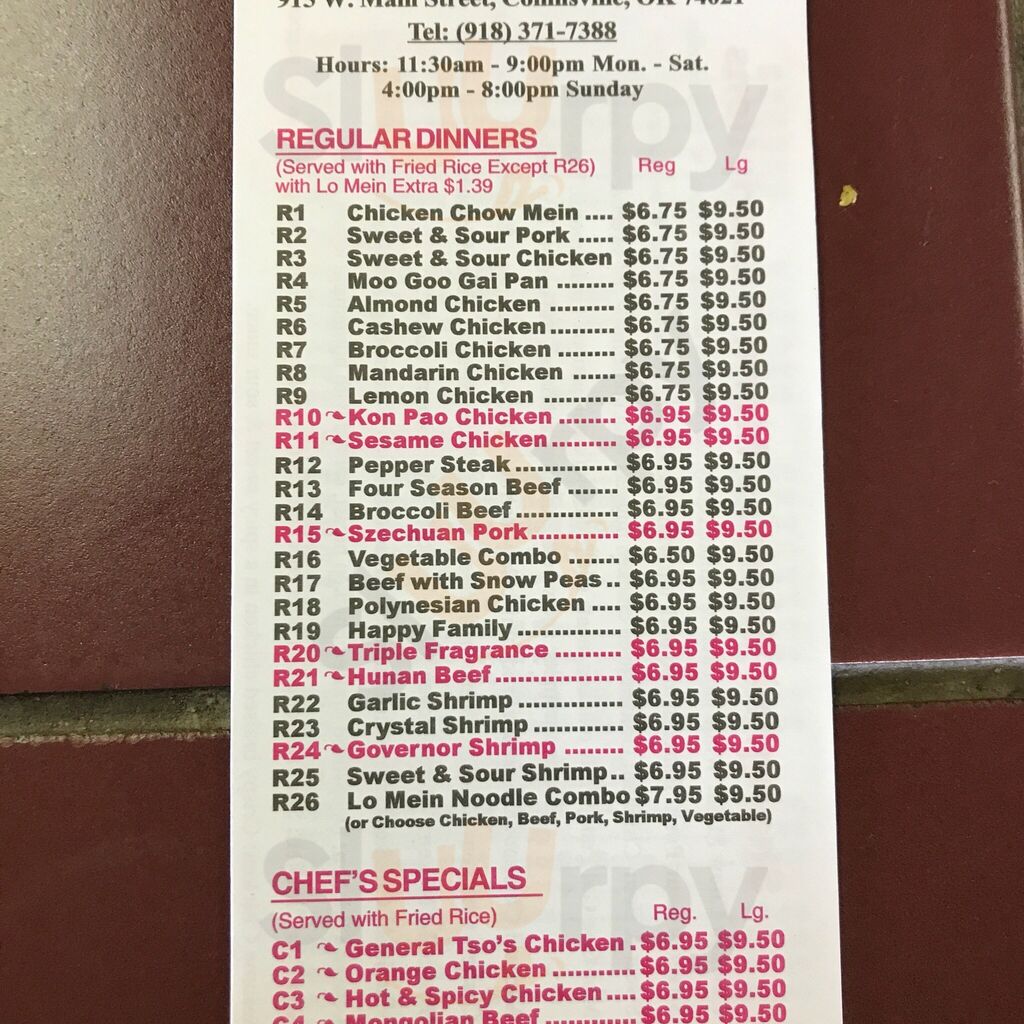 915 W. Main Street, Collinsville, OK 74021
Tel: (918) 371-7388
Hours: 11:30am - 9:00pm Mon. - Sat.
4:00pm - 8:00pm Sunday
REGULAR DINNERS
(Served with Fried Rice Except R26) Reg Lg
with Lo Mein Extra $1.39
R1 Chicken Chow Mein .... $6.75 $9.50
R2 Sweet & Sour Pork ..... $6.75 $9.50
R3 Sweet & Sour Chicken $6.75 $9.50
R4 Moo Goo Gai Pan ........ $6.75 $9.50
R5 Almond Chicken ......... $6.75 $9.50
R6 Cashew Chicken......... $6.75 $9.50
R7 Broccoli Chicken ........ $6.75 $9.50
R8 Mandarin Chicken ...... $6.75 $9.50
R9 Lemon Chicken .......... $6.75 $9.50
R10 Kon Pao Chicken ........ $6.95 $9.50
R11 Sesame Chicken......... $6.95 $9.50
R12 Pepper Steak.............. $6.95 $9.50
R13 Four Season Beef ....... $6.95 $9.50
R14 Broccoli Beef.............. $6.95 $9.50
R15 Szechuan Pork............ $6.95 $9.50
R16 Vegetable Combo ....... $6.50 $9.50
R17 Beef with Snow Peas .. $6.95 $9.50
R18 Polynesian Chicken .... $6.95 $9.50
R19 Happy Family .............. $6.95 $9.50
R20 Triple Fragrance ......... $6.95 $9.50
R21 Hunan Beef................. $6.95 $9.50
R22 Garlic Shrimp .............. $6.95 $9.50
R23 Crystal Shrimp ............ $6.95 $9.50
R24 Governor Shrimp ........ $6.95 $9.50
R25 Sweet & Sour Shrimp.. $6.95 $9.50
R26 Lo Mein Noodle Combo $7.95 $9.50
(or Choose Chicken, Beef, Pork, Shrimp, Vegetable)
CHEF'S SPECIALS
(Served with Fried Rice) Reg. Lg.
C1 General Tso's Chicken . $6.95 $9.50
C2 Orange Chicken ........... $6.95 $9.50
C3 Hot & Spicy Chicken .... $6.95 $9.50
C4 Mongolian Beef........... $6.95 $9.50